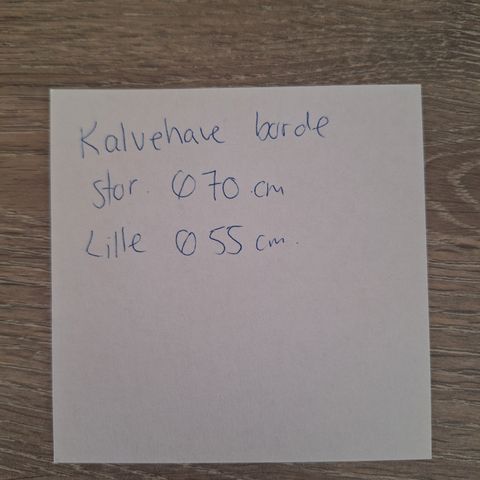 Kalvehave borde
Stor. Ø 70 cm
Lille Ø 55 cm.